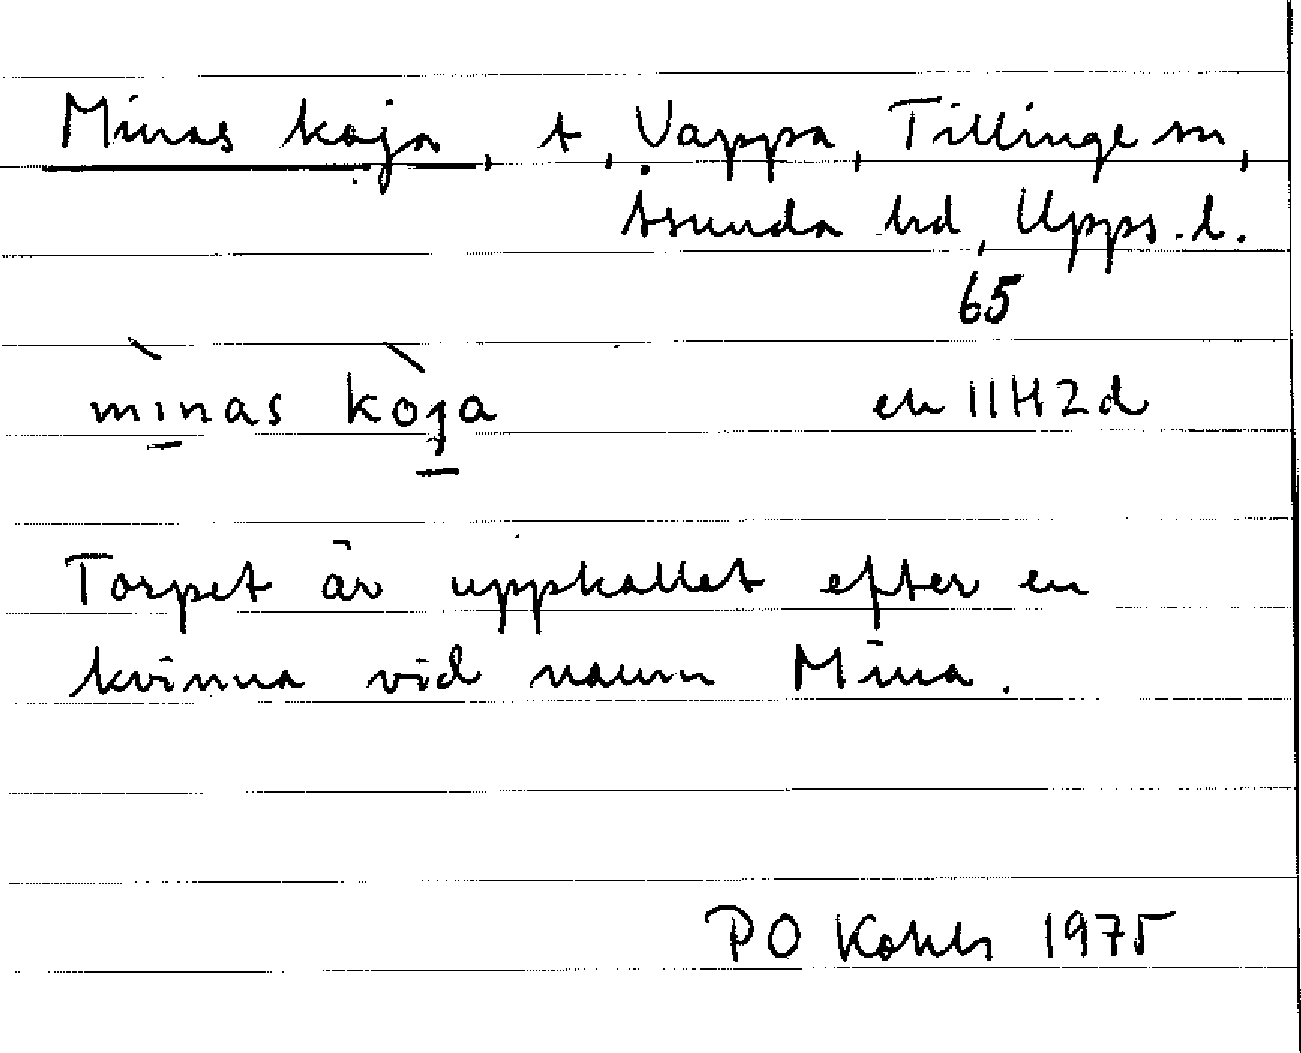 Minas koja, t, Vappa, Tillinge sn,
Åsunda hd, Upps. l.
65
mìnas kòja
ek 11H2d
Torpet är uppkallat efter en
kvinna vid namn Mina.
PO 1975